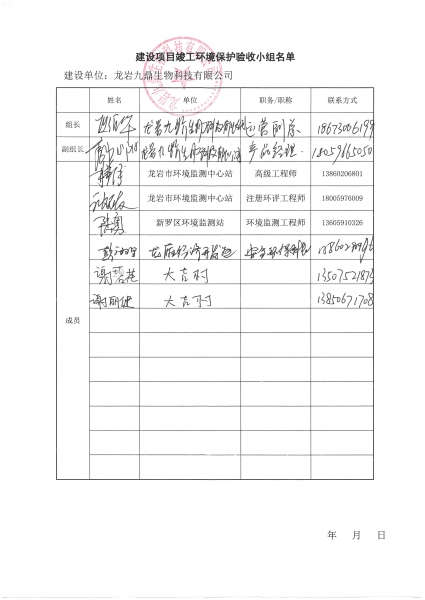 建设项目竣工环境保护验收小组名单
建设单位：龙岩九鼎生物科技有限公司
姓名 单位 职务/职称 联系方式
组长 龙岩九鼎生物科技有限公司 运营副总
副组长 龙岩九鼎生物科技有限公司 产品经理 18059665050
龙岩市环境监测中心站 高级工程师 13860206801
龙岩市环境监测中心站 注册环评工程师 18005976009
陈勇 新罗区环境监测站 环境监测工程师 13605910326
成员
谢碧莲 大吉村 13507521873
谢丽健 大吉村 13850671708
年 月 日